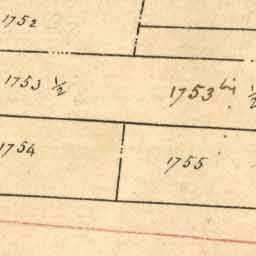 1752
1753 ½ 1753 bis ½
1754 1755